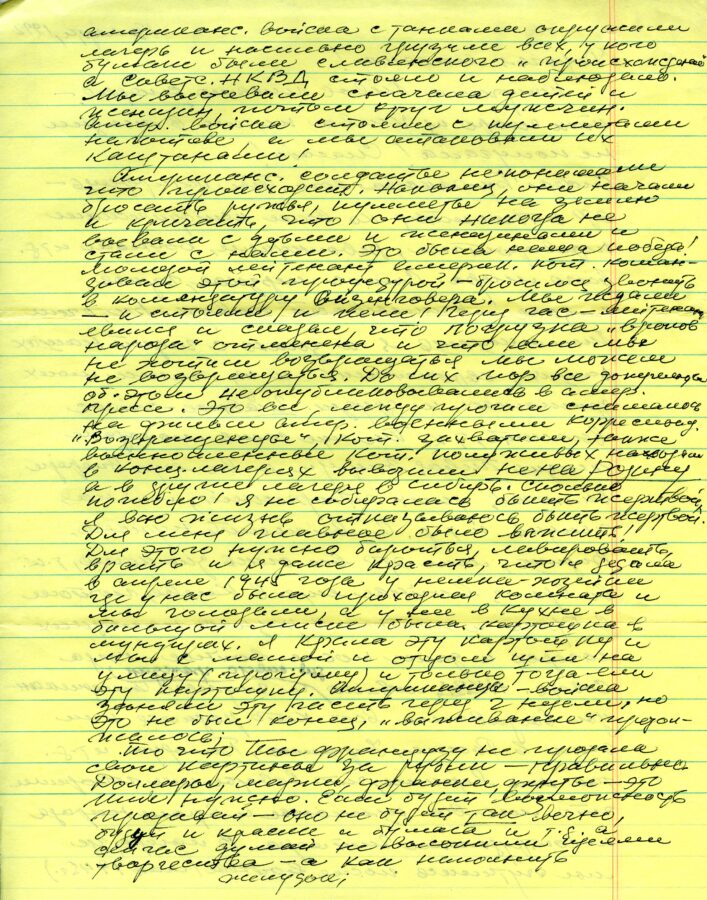 американс. войска с танками окружили
лагерь и насильно грузили всех, у кого
бумаги были славянского „происхождения“
а Советс. НКВД стояло и наблюдало.
Мы выставили сначала детей и
женщин, потом круг мужчин.
Амер. войска стояли с пулеметами
наготове и мы атаковали их
каштанами!
Американс. солдаты не понимали
что происходит. Наконец, они начали
бросать ружья, пулеметы на землю
и кричать, что они никогда не
воевали с детьми и женщинами и
стали с нами. Это была наша победа!
Молодой лейтенант америк. кот. коман-
довал этой процедурой – бросился звонить
в комендатуру Эйзенховера. Мы ждали
– и стояли и пели! Через час – лейтенант
явился и сказал, что погрузка „врагов
народа“ отменена и что если мы
не хотим возвращаться мы можем
не возвращаться. До сих пор все документы
об этом не опубликовывались в амер.
прессе. Это все, между прочим снималось
на фильм амер. военными корреспонд.
„Возвращенцы“, кот. захватили, также
военнопленные кот. полуживых находили
в конц. лагерях вывозили не на Родину
а в другие лагеря в Сибирь.
пожило! Я не собиралась быть жертвой,
я всю жизнь отказываюсь быть жертвой.
Для меня главное было выжить.
Для этого нужно бороться, лавировать,
врать и я даже красть, что я делала
в апреле 1945 года у немки-хозяйки
где у нас была проходная комната и
мы голодали, а у нее в кухне в
большой миске была картошка в
мундирах. Я крала эту картошку и
мы с мамой и отцом шли на
улицу (прогулку) и только тогда ели
эту картошку. Американцы – войска
заняли эту часть через 2 недели, но
это не был конец, „выживание“ продол-
жалось;
То что Ты французу не продала
свои картины за рубли – правильно.
Доллары, марки, франки, фунты – это
нужно. Если будет возможность
продавай – оно не будет так вечно,
будут и краски и бумага и т.д. а
сейчас думай не высокими идеями
творчества – а как наполнить
желудок;